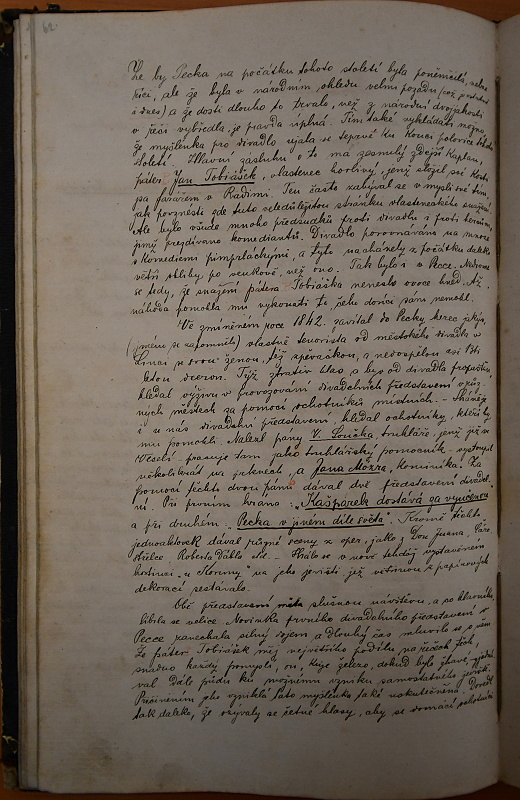 62.
Že by Pecka na počátku tohoto století byla poněmčilá, nelze
říci, ale že byla v národním ohledu velmi pozadu (což
i dnes) a že dosti dlouho to trvalo, než z národní dvojakosti
v řeči vybředla, je pravda úplná. Tím také vykládati možno,
že myšlenka pro divadlo ujala se teprvé ku konci polovice tohoto
století. Hlavní zásluhu o to má zesnulý zdejší kaplan,
páter Jan Tobiášek, vlastenec horlivý, jenž složil své kosti
jsa farářem v Radimi. Ten často zabýval se v mysli své tím,
jak povznésti zde tuto veledůležitou stránku vlasteneckého snažení
Ale bylo všude mnoho předsudků proti divadlu i proti hercům,
jimž přezdíváno komediantů. Divadlo porovnáváno na mnoze
s komediemi pimprlačnými, a tyto nacházely z počátku daleko
větší obliby po venkově, než ono. Tak bylo i v Pecce. Nedivme
se tedy, že snažení pátera Tobiáška neneslo ovoce hned. Až
náhoda pomohla mu vykonati to, čeho docíliti sám nemohl.
Ve zmíněném roce 1842. zavítal do Pecky herec jakýs,
(jméno se zapomnělo) vlastně tenorista od městského divadla v
Linci se svou ženou, též zpěvačkou, a nedospělou asi 8ti
letou dcerou. Týž ztrativ hlas a byv od divadla propuštěn,
hledal výživu v provozování divadelních představení v růz-
ných městech za pomoci ochotníků místních. - Sháněje
i u nás divadelní představení, hledal ochotníky, kteříž by
mu pomohli. Nalezl pány V. Součka, truhláře, jenž již ve
Veselí pracuje tam jako truhlářský pomocník vystoupil
několikrát na prknech, a Jana Mózra, kominíka. Za
pomoci těchto dvou pánů dával dvě představení divadel-
ní. Při prvním hráno: „Kašpárek dostává za vyučenou
a při druhém „Pecka v jiném díle světa“. Kromě těchto
jednoaktovek dával různé sceny z oper, jako z Don Juana, Čáro-
střelce Roberta Ďábla atd. - Hrálo se v nově tehdáž vystavěném
hostinci „u Koruny“ na jeho jevišti jež většinou z papírových
dekorací sestávalo.
Obě představení měla slušnou návštěvu, a
líbila se velice. Novinka prvního divadelního představení v
Pecce zanechala silný dojem a dlouhý čas mluvilo se o něm.
Že páter Tobiášek měl největšího podílu na řečech těch,
snadno každý pomyslí, on, kuje železo, dokud bylo žhavé,
val dále půdu ku možnému vzniku samostatného
Přičiněním jeho vzniklá tato myšlénka také uskutečněna. Dovedl
tak daleko, že ozývaly se četné hlasy, aby se domácí ochotníci